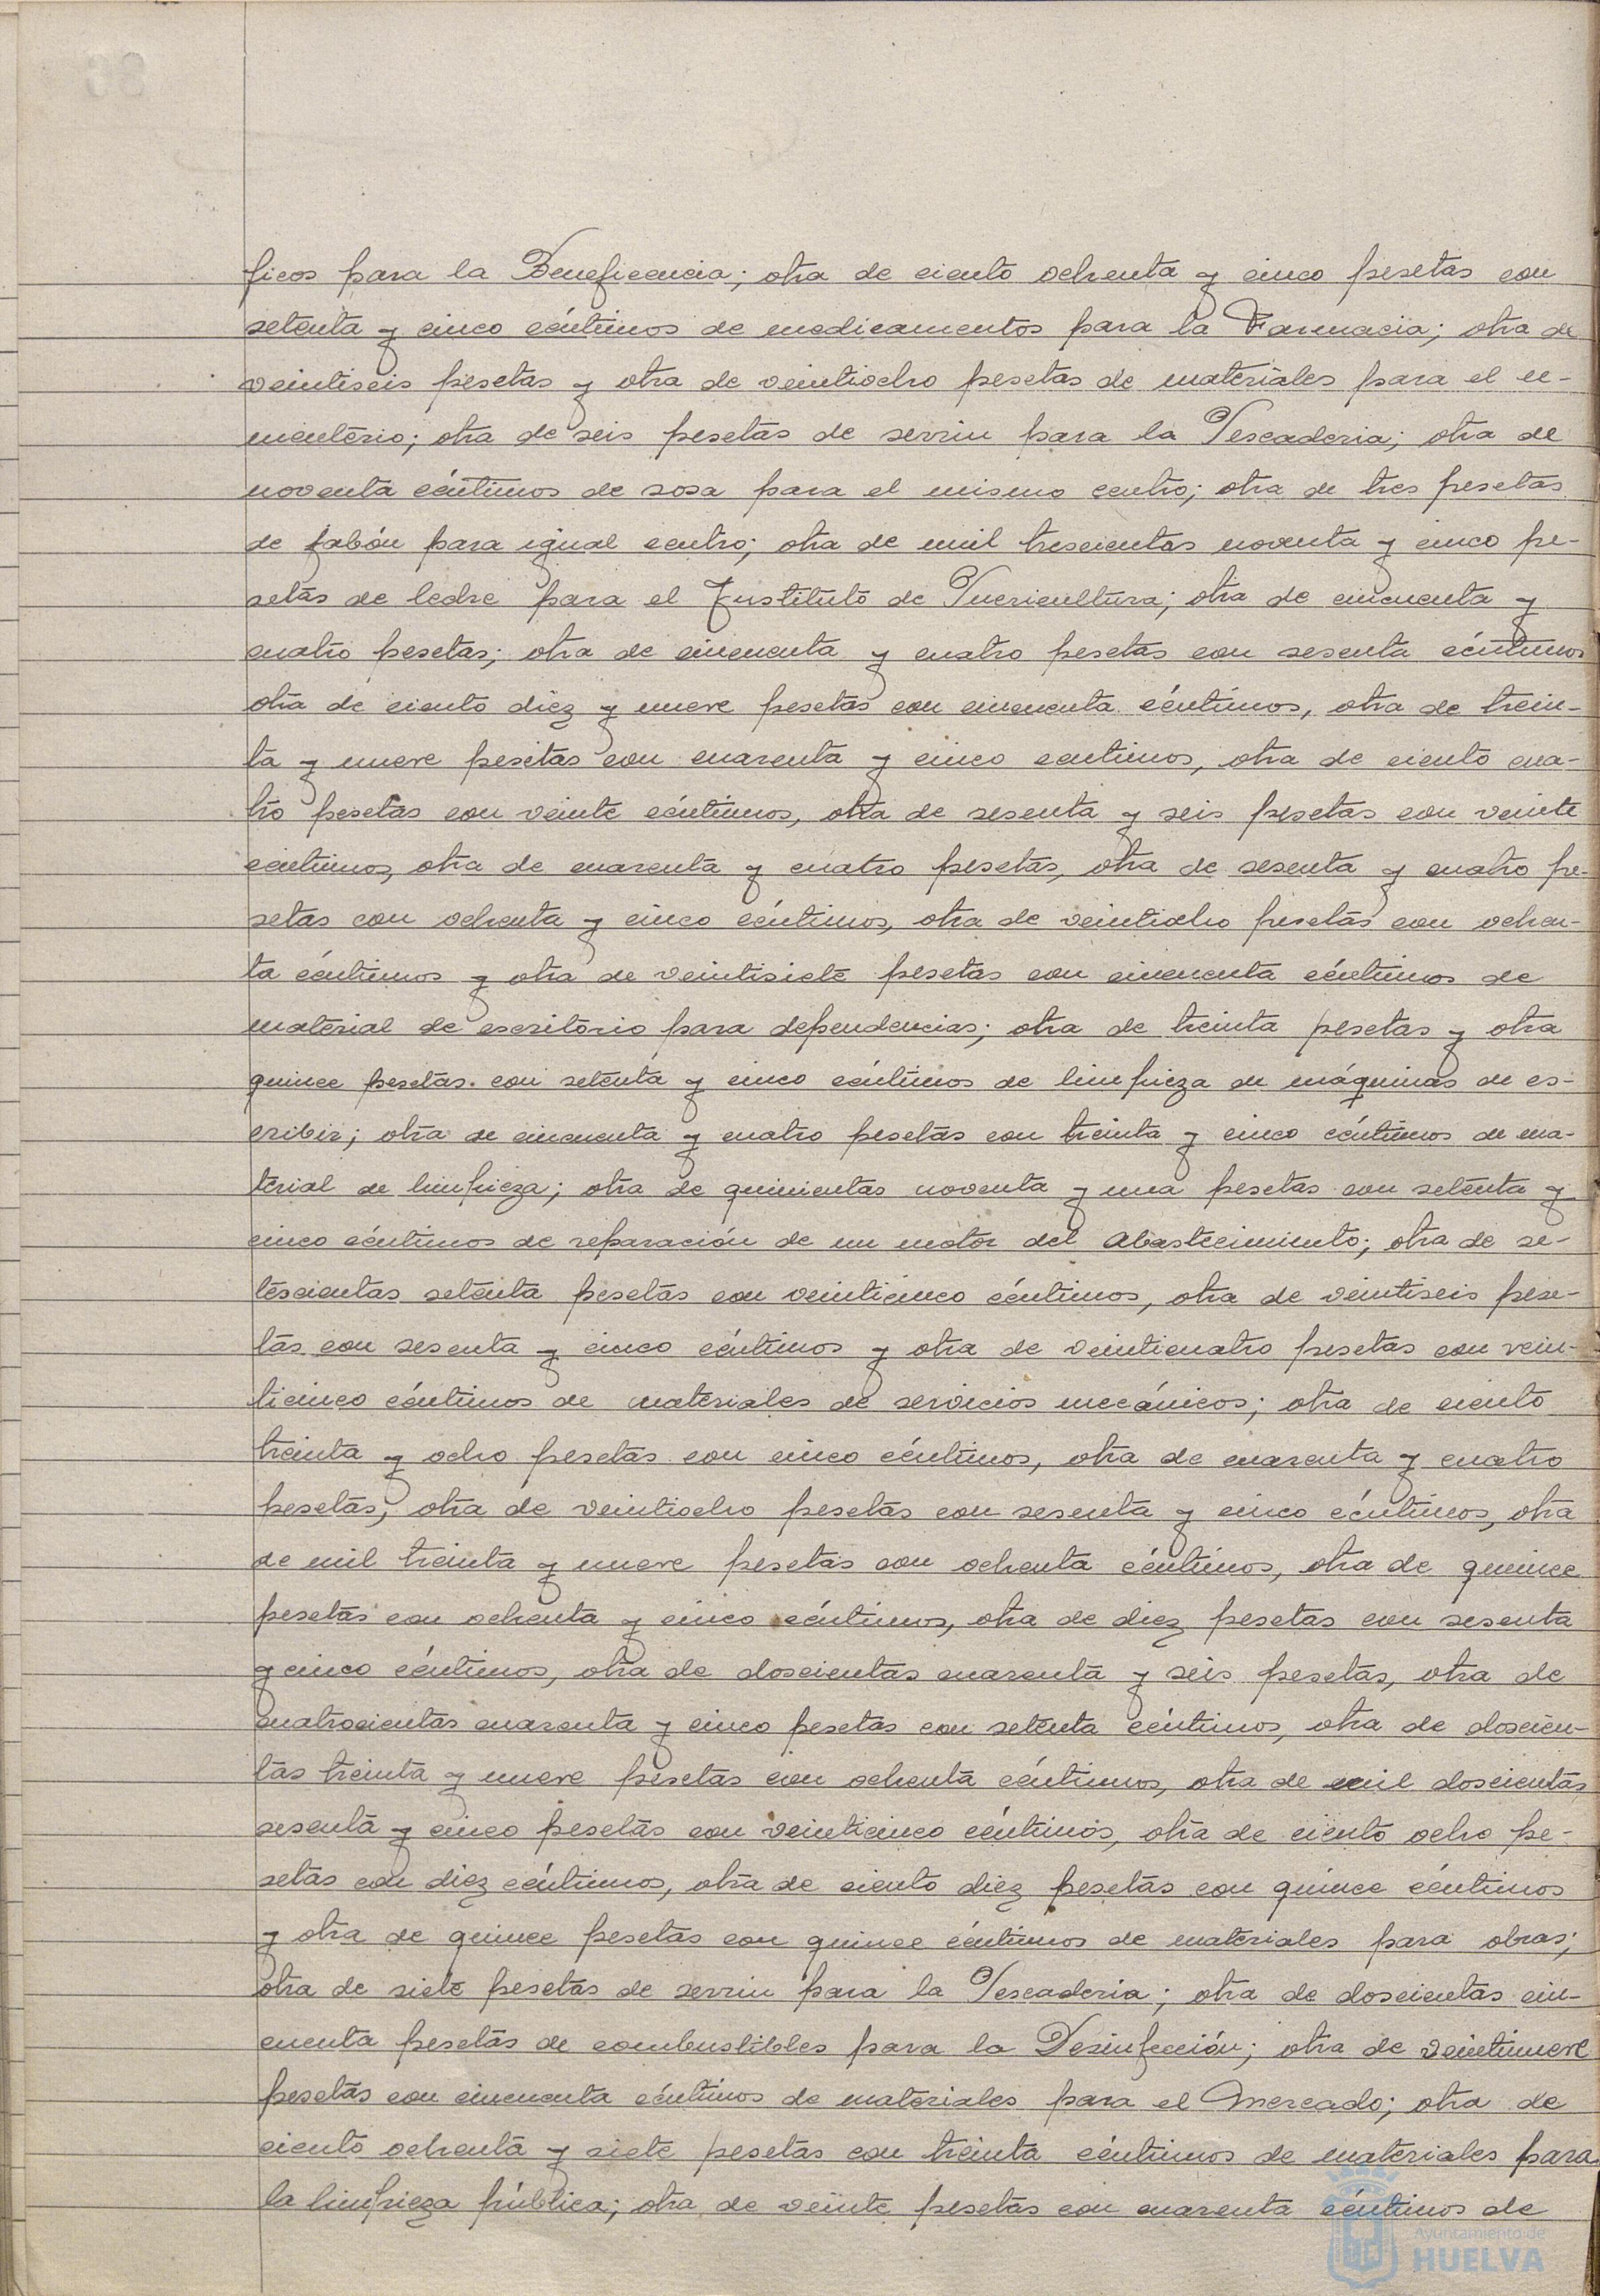 ficos para la Beneficencia; otra de ciento ochenta y cinco pesetas con
setenta y cinco céntimos de medicamentos para la Farmacia; otra de
veintiseis pesetas y otra de veintiocho pesetas de materiales para el ce-
menterio; otra de seis pesetas de serrin para la Pescaderia; otra de
noventa céntimos de sosa para el mismo centro; otra de tres pesetas
de jabón para igual centro; otra de mil trescientas noventa y cinco pe-
setas de leche para el Instituto de Puericultura; otra de cincuenta y
cuatro pesetas; otra de cincuenta y cuatro pesetas con sesenta céntimos
otra de ciento diez y nueve pesetas con cincuenta céntimos, otra de trein-
ta y nueve pesetas con cuarenta y cinco centimos, otra de ciento cua-
tro pesetas con veinte céntimos, otra de sesenta y seis pesetas con veinte
céntimos, otra de cuarenta y cuatro pesetas, otra de sesenta y cuatro pe-
setas con ochenta y cinco céntimos, otra de veintiocho pesetas con ochen-
ta céntimos y otra de veintisiete pesetas con cincuenta céntimos de
material de escritorio para dependencias; otra de treinta pesetas y otra
quince pesetas con setenta y cinco céntimos de limpieza de máquinas de es-
cribir; otra de cincuenta y cuatro pesetas con treinta y cinco céntimos de ma-
terial de limpieza; otra de quinientas noventa y una pesetas con setenta y
cinco céntimos de reparación de un motor del Abastecimiento; otra de se-
tescientas setenta pesetas con veinticinco céntimos, otra de veintiseis pese-
tas con sesenta y cinco céntimos y otra de veinticuatro pesetas con vein-
ticinco céntimos de materiales de servicios mecánicos; otra de ciento
treinta y ocho pesetas con cinco céntimos, otra de cuarenta y cuatro
pesetas, otra de veintiocho pesetas con sesenta y cinco céntimos, otra
de mil treinta y nueve pesetas con ochenta céntimos, otra de quince
pesetas con ochenta y cinco céntimos, otra de diez pesetas con sesenta
y cinco céntimos, otra de doscientas cuarenta y seis pesetas, otra de
cuatrocientas cuarenta y cinco pesetas con setenta céntimos, otra de doscien-
tas treinta y nueve pesetas con ochenta céntimos, otra de mil doscientas
sesenta y cinco pesetas con veinticinco céntimos, otra de ciento ocho pe-
setas con diez céntimos, otra de ciento diez pesetas con quince céntimos
y otra de quince pesetas con quince céntimos de materiales para obras;
otra de siete pesetas de serrin para la Pescaderia; otra de doscientas cin-
cuenta pesetas de combustibles para la Desinfección; otra de veintinueve
pesetas con cincuenta céntimos de materiales para el Mercado; otra de
ciento ochenta y siete pesetas con treinta céntimos de materiales para
la limpieza pública; otra de veinte pesetas con cuarenta céntimos de
Ayuntamiento de
HUELVA